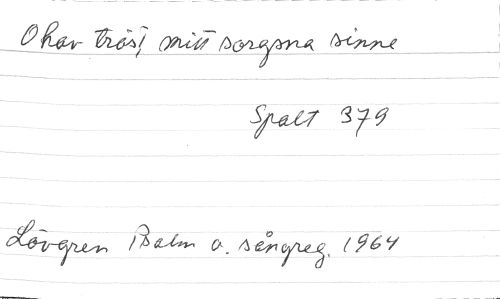 O hav tröst, mitt sorgsna sinne
Spalt 379
Lövgren Psalm o. sångreg. 1964